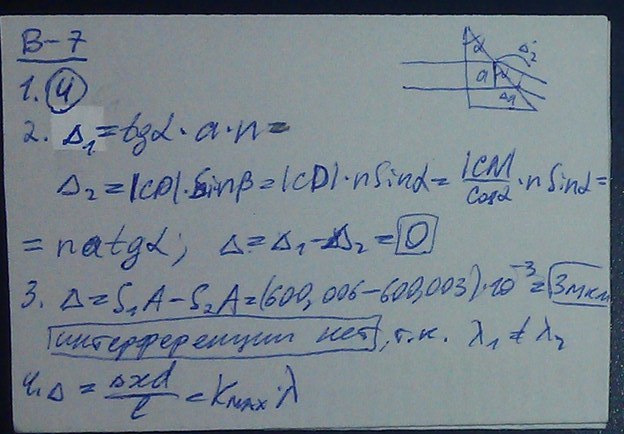 В-7
1. 4
2. Δ₁ = tgα · a · n =
Δ₂ = |CD| · Sinβ = |CD| · n Sinα = |CM|/Cosα · n Sinα =
= n a tgα; Δ = Δ₁ - Δ₂ = 0
3. Δ = S₁A - S₂A = (600,006 - 600,003) · 10⁻³ = 3мкм
интерференции нет, т.к. λ₁ ≠ λ₂
4. Δ = Δxd/l = Kmax · λ
α Δ₂
a α
Δ₁